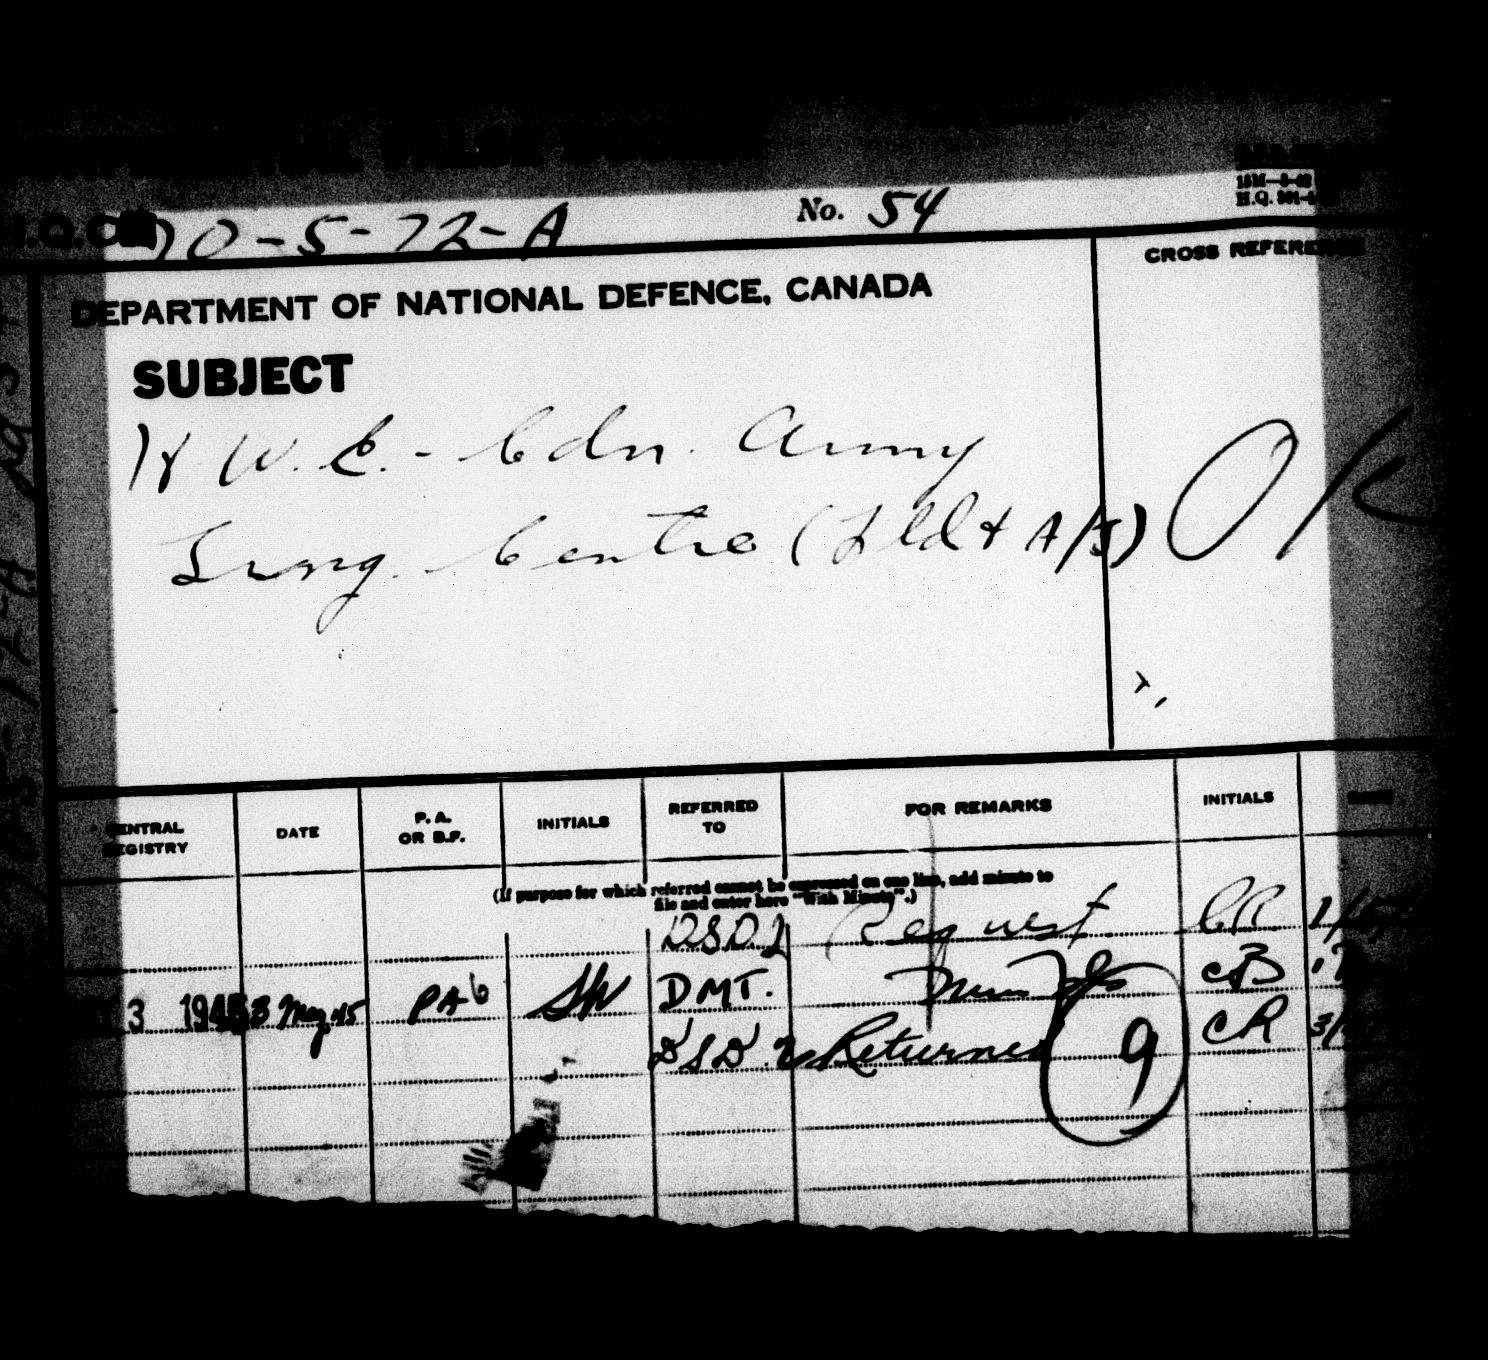 70-5-72-A No. 54
15M-
H.Q.
CROSS REFERENCE
DEPARTMENT OF NATIONAL DEFENCE, CANADA
SUBJECT
W. E. - Cdn. Army
Trng. Centre (Fld + A/T)
OK
CENTRAL REGISTRY DATE P. A. OR B.F. INITIALS REFERRED TO FOR REMARKS INITIALS
(If purpose for which referred cannot be expressed on one line, add minute to
file and enter here "With Minute".)
DSD2 Request CR
3 1945 3 May 45 PA6 DMT. CB
DSD. 2 Returned 9 CR